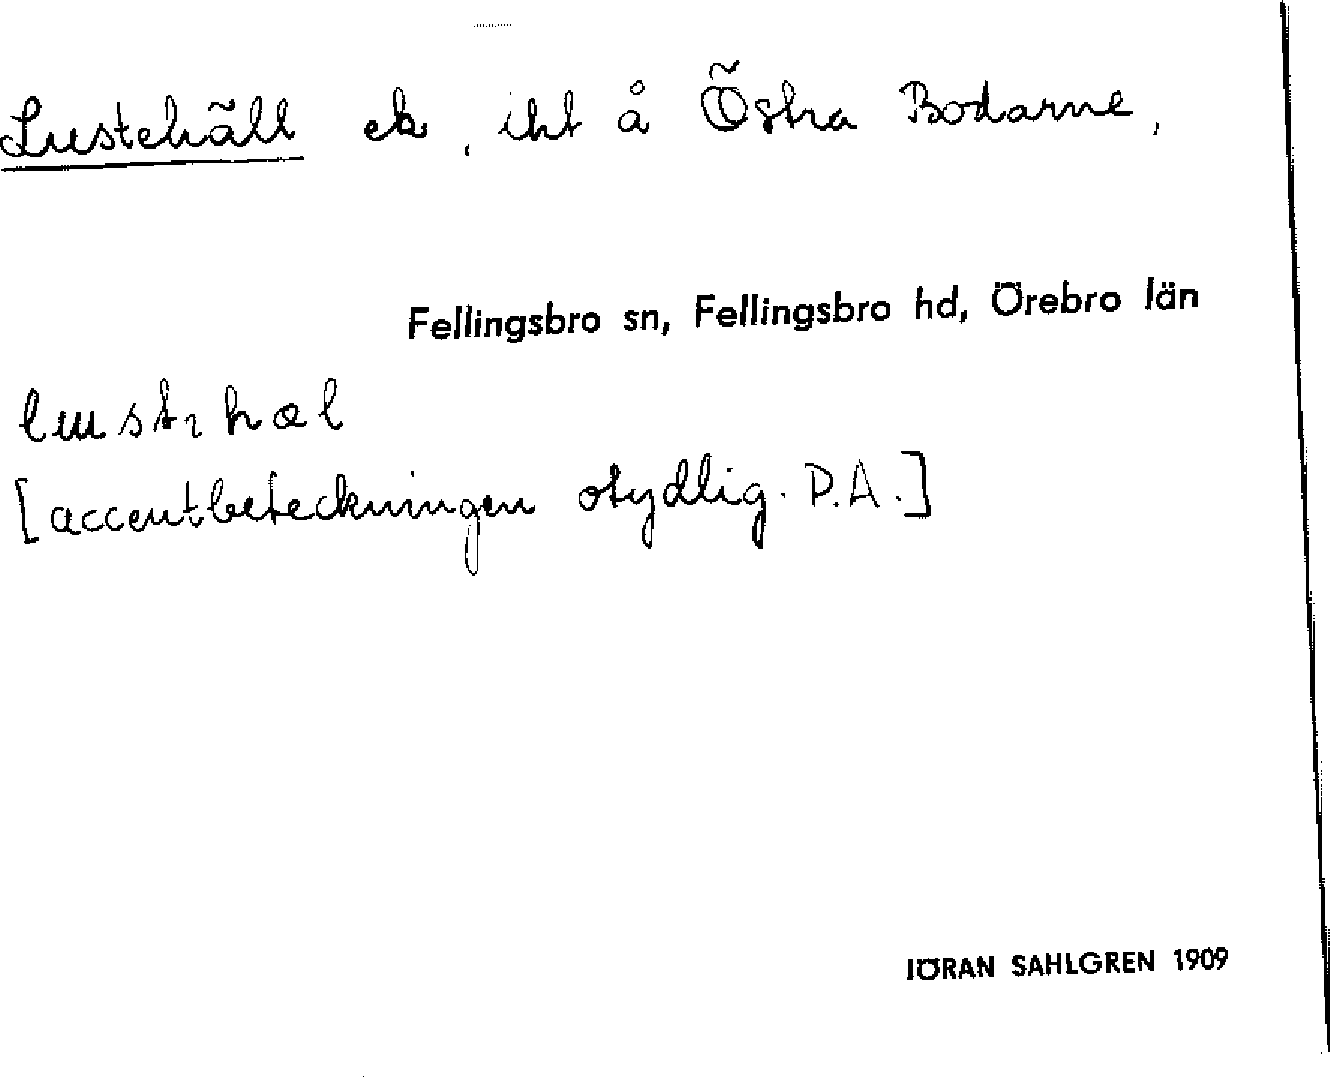 Lustehäll ek, ikt å Östra Bodarne,
Fellingsbro sn, Fellingsbro hd, Örebro län
[accentbeteckningen otydlig. P.A.]
JÖRAN SAHLGREN 1909